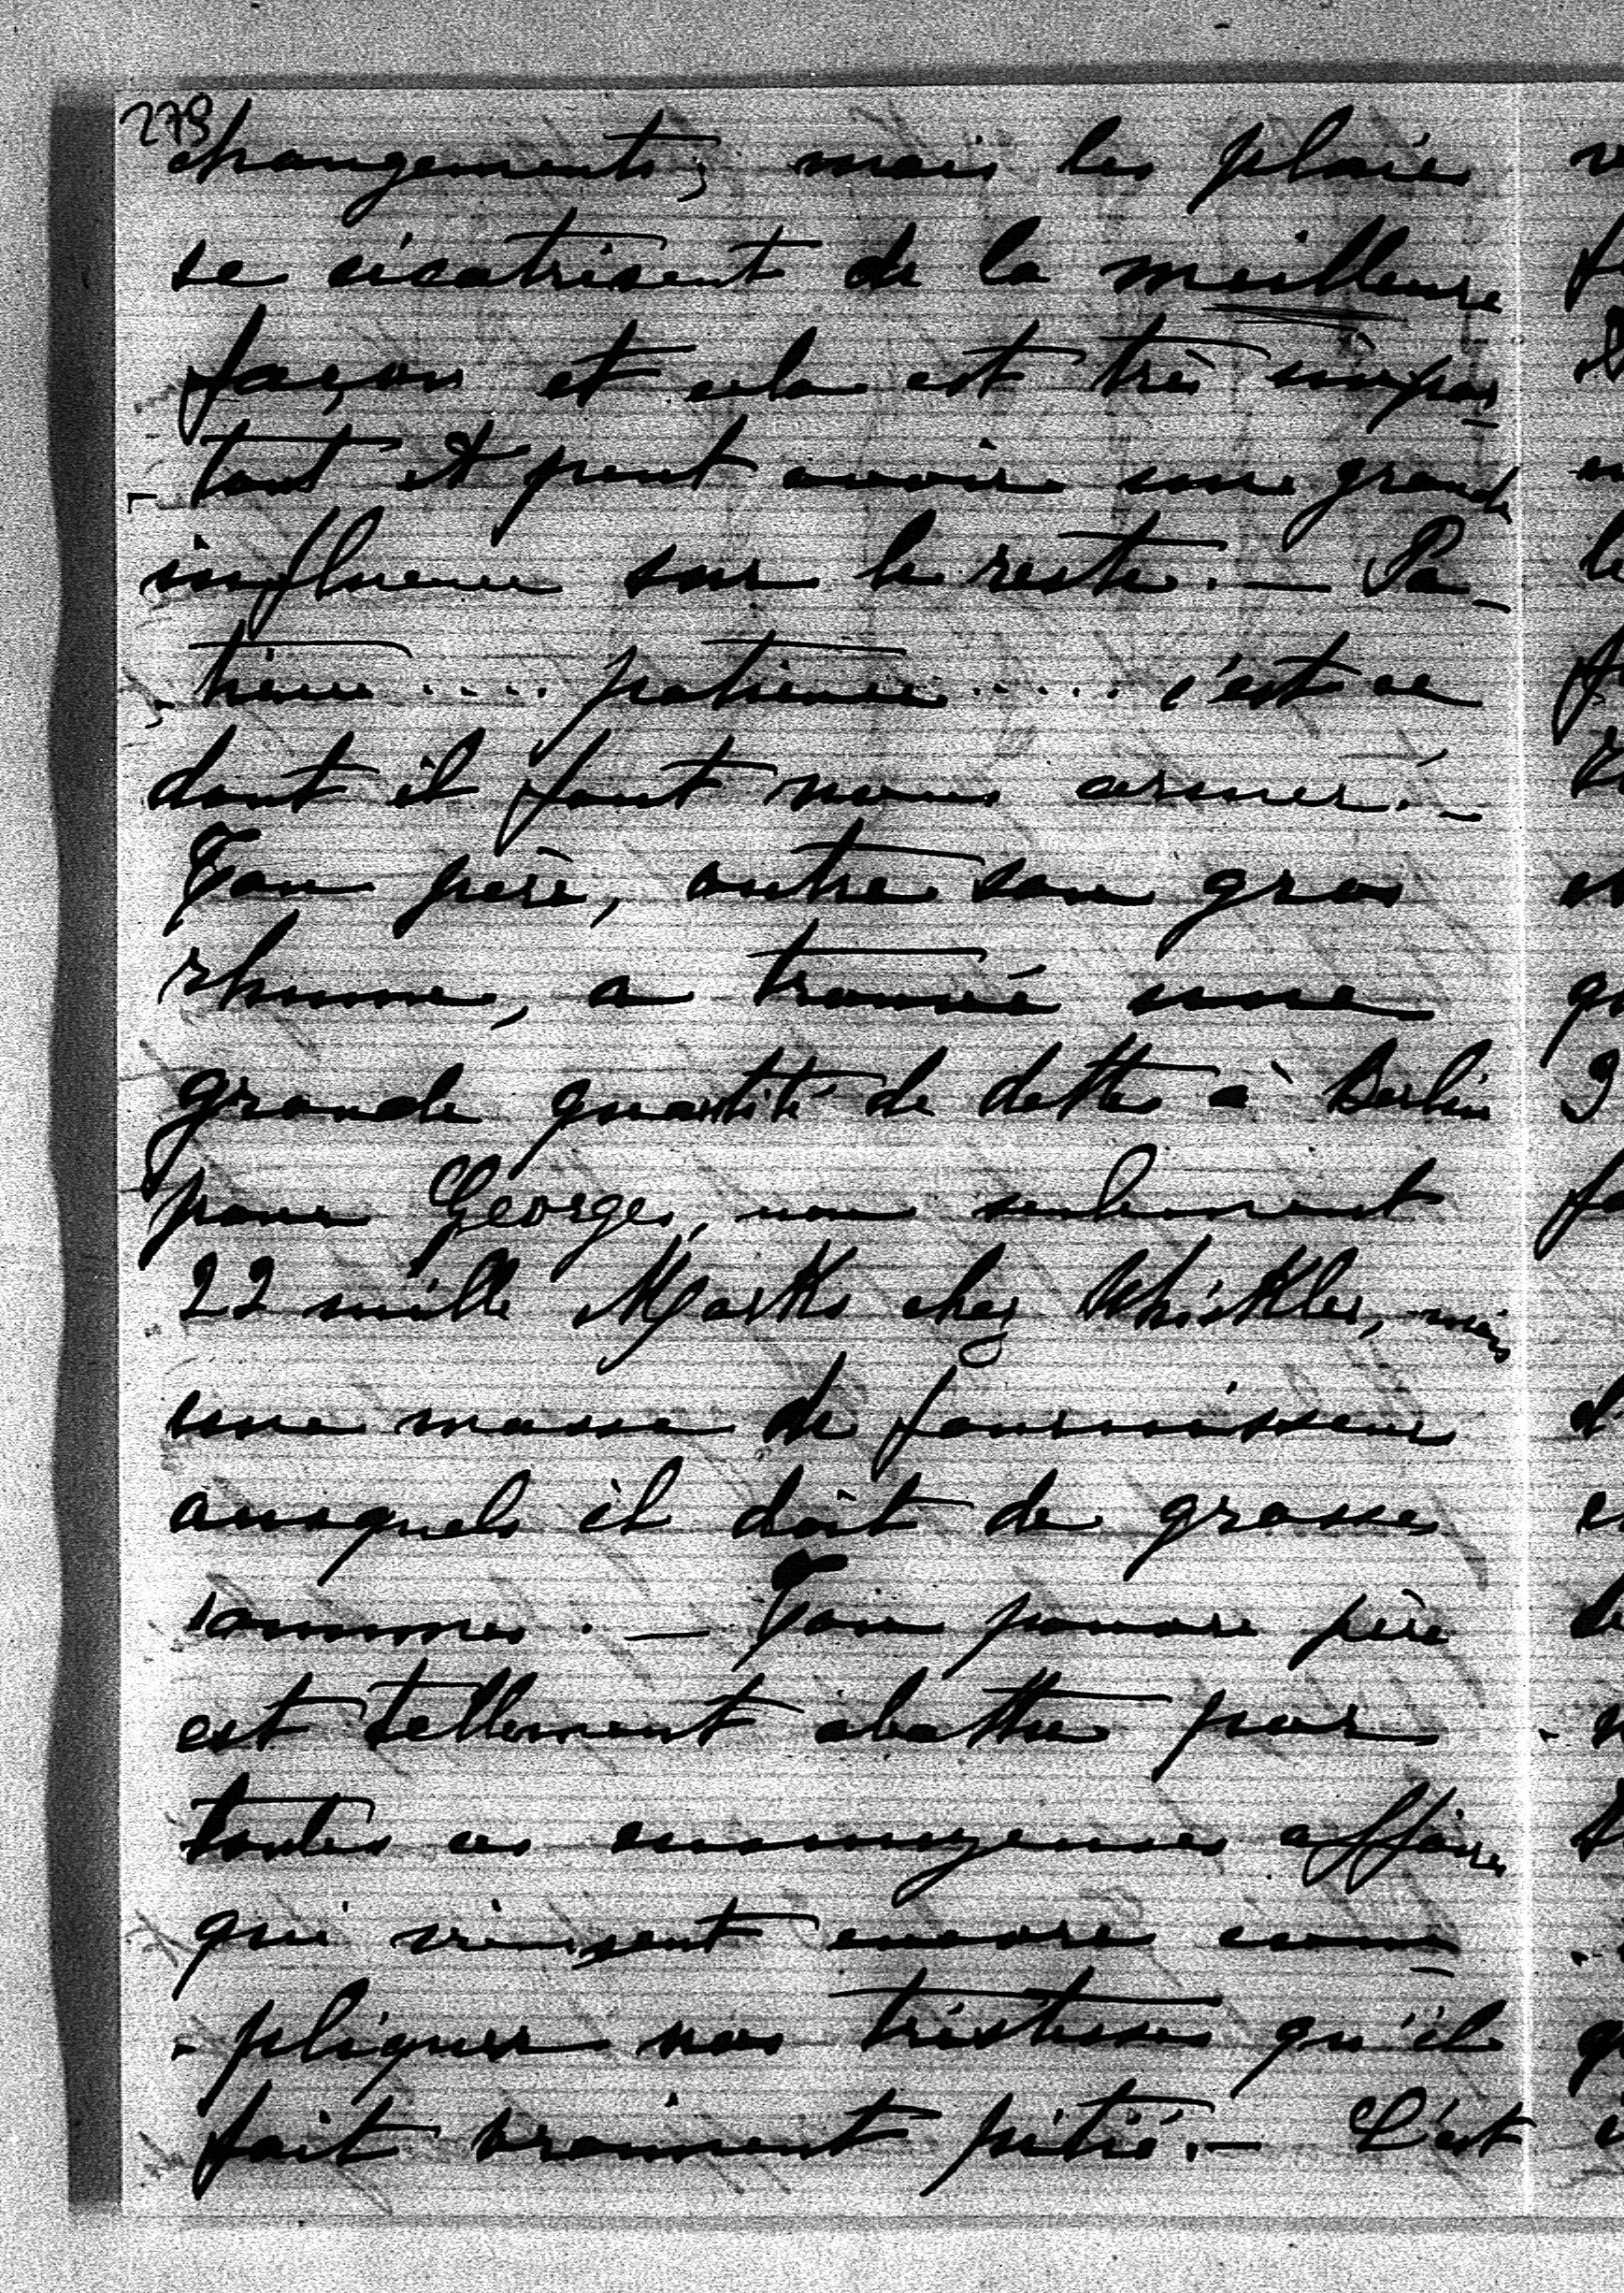 279
changements, mais les plaies
se sicatrisent de la meilleure
façon et cela est très impor-
-tant et peut avoir une grande
influence sur le reste. — Pa-
-tience .... patience ..... c'est ce
dont il faut nous armer. –
Ton père, outre son gros
rhume, a trouvé une
grande quantité de dettes à Berlin
pour Georges, non seulement
22 mille Marks chez mais
une masse de fournisseurs
auxquels il doit de grosses
sommes. — Ton pauvre père
est tellement abattu par
toutes ces ennuyeuses affaires
qui viennent encore com-
-pliquer nos tristesses qu'il
fait vraiment pitié. — C'est